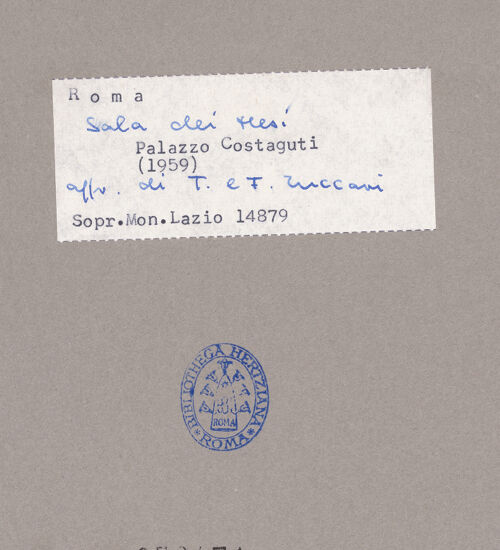 Roma
Sala dei Mesi
Palazzo Costaguti
(1959)
affr. di T. e F. Zuccari
Sopr.Mon.Lazio 14879
*BIBLIOTHECA HERTZIANA*
ROMA
ROMA